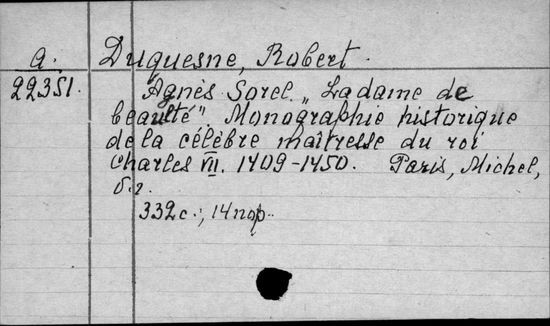 a. Duquesne, Robert.
22351. Agnès Sorel „La dame de
beaulté". Monographie historique
de la célèbre maîtresse du roi
Charles VII. 1409-1450. Paris, Michel,
б.г.
332c.; 14 пор.